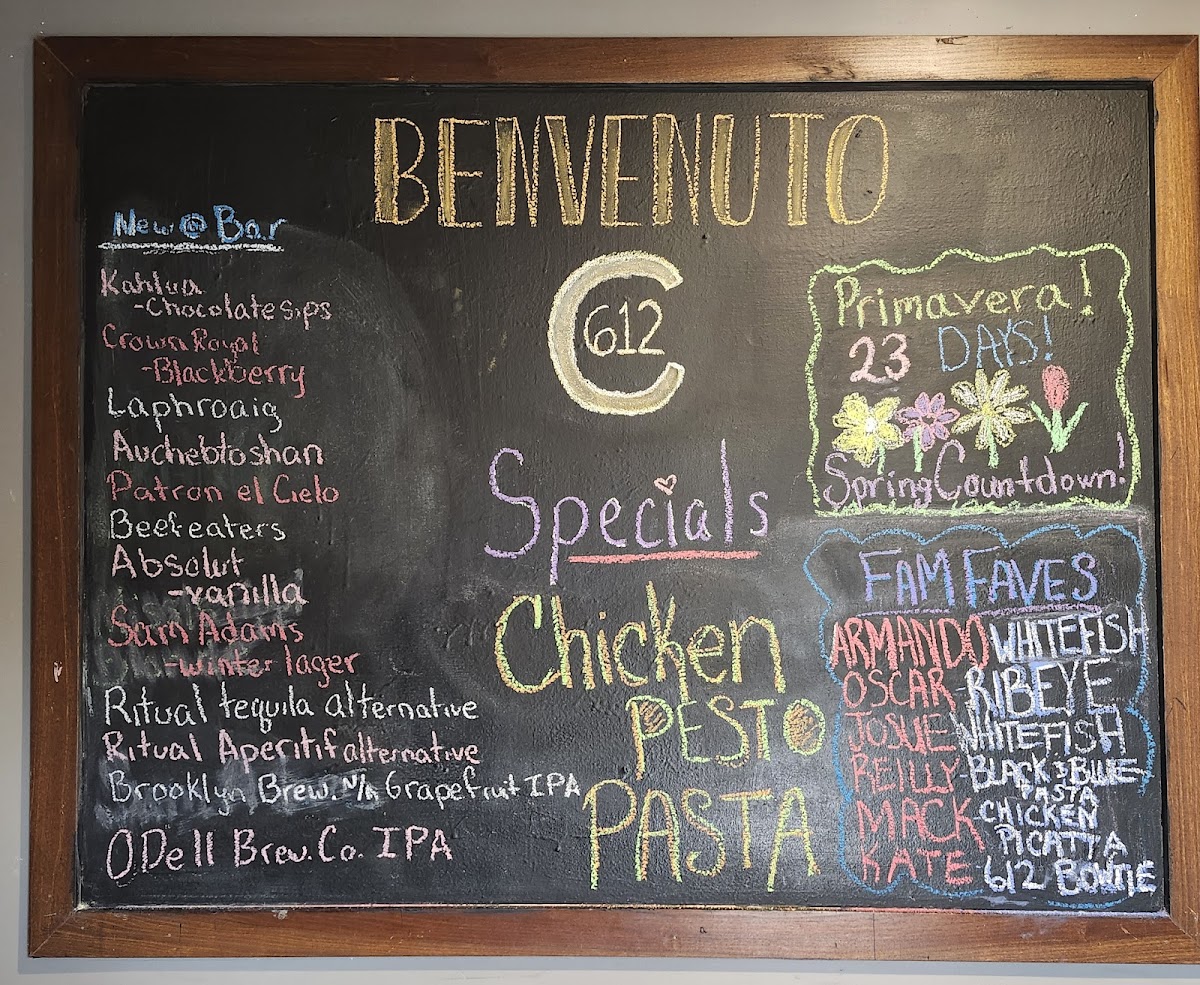 BENVENUTO
C
612
New @ Bar
Kahlua
-Chocolate sips
Crown Royal
-Blackberry
Laphroaig
Auchebtoshan
Patron el Cielo
Beefeaters
Absolut
-vanilla
Sam Adams
-winter lager
Ritual tequila alternative
Ritual Aperitif alternative
Brooklyn Brew. N/A Grapefruit IPA
O'Dell Brew. Co. IPA
Specials
Chicken
PESTO
PASTA
Primavera!
23 DAYS!
Spring Countdown!
FAM FAVES
ARMANDO WHITEFISH
OSCAR-RIBEYE
JOSUE WHITEFISH
REILLY-BLACK & BLUE
PASTA
MACK-CHICKEN
PICATTA
KATE-612 BOWTIE